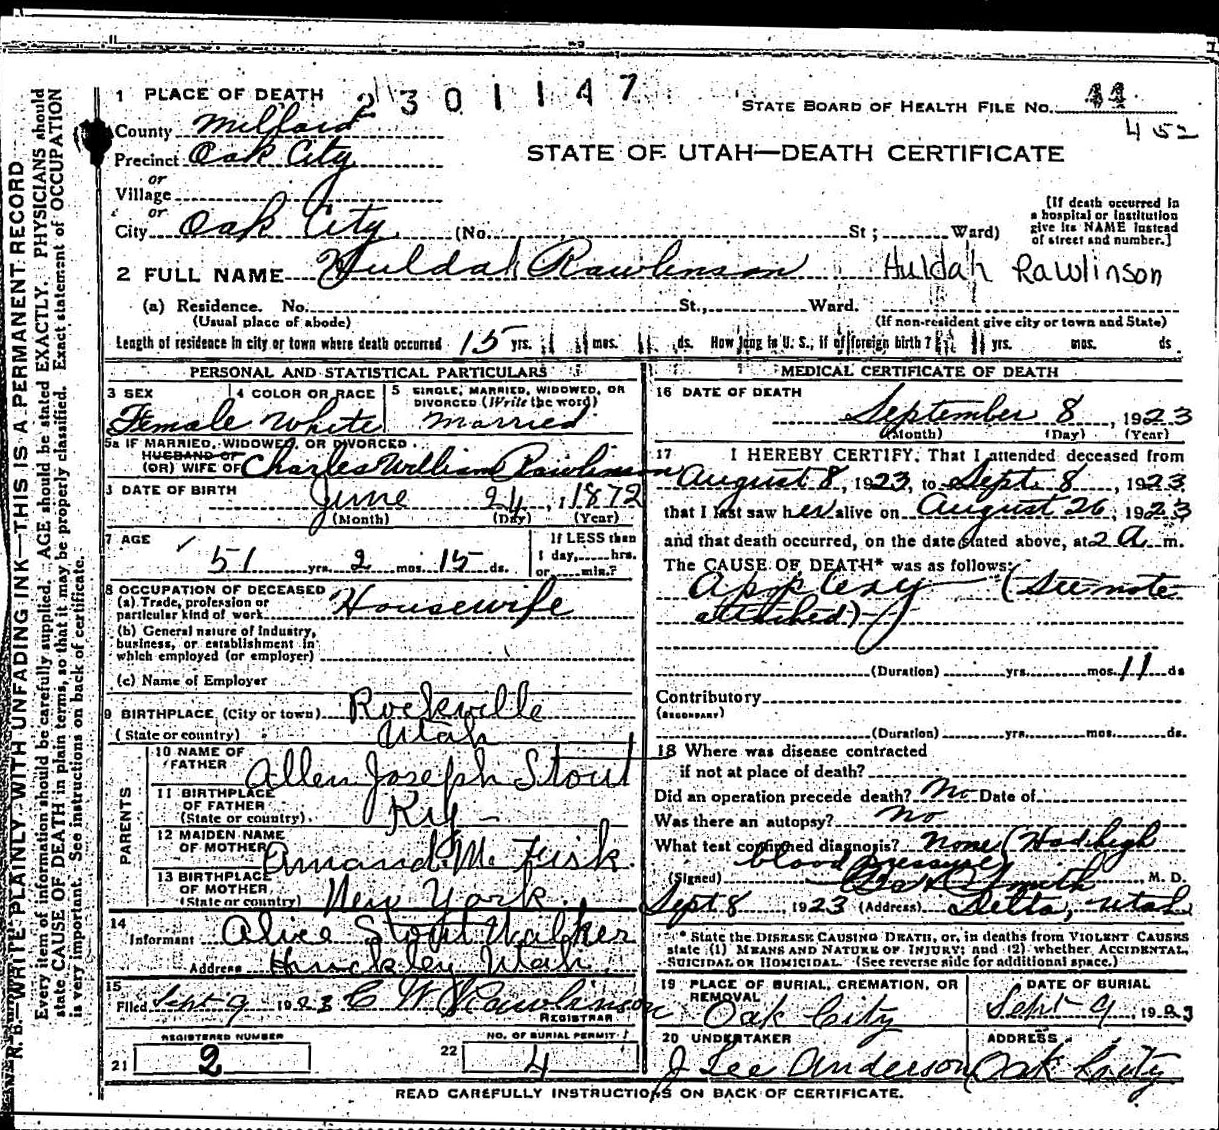 1 PLACE OF DEATH 2301147
STATE BOARD OF HEALTH FILE No. 44
452
County Millard
Precinct Oak City
STATE OF UTAH—DEATH CERTIFICATE
or
Village
or
City Oak City (No. St; Ward)
[If death occurred in
a hospital or institution
give its NAME instead
of street and number.]
2 FULL NAME Huldah Rawlinson Huldah Rawlinson
(a) Residence. No. St., Ward.
(Usual place of abode) (If non-resident give city or town and State)
Length of residence in city or town where death occurred 15 yrs. mos. ds. How long in U. S., if of foreign birth? yrs. mos. ds
PERSONAL AND STATISTICAL PARTICULARS
3 SEX 4 COLOR OR RACE 5 SINGLE, MARRIED, WIDOWED, OR
DIVORCED (Write the word)
Female White Married
5a IF MARRIED, WIDOWED, OR DIVORCED
HUSBAND OF
(OR) WIFE OF Charles William Rawlinson
DATE OF BIRTH
June 24, 1872
(Month) (Day) (Year)
7 AGE If LESS than
1 day, hrs.
51 yrs. 2 mos. 15 ds. or min.?
8 OCCUPATION OF DECEASED
(a) Trade, profession or
particular kind of work Housewife
(b) General nature of industry,
business, or establishment in
which employed (or employer)
(c) Name of Employer
9 BIRTHPLACE (City or town) Rockville
(State or country) Utah
PARENTS
10 NAME OF
FATHER Allen Joseph Stout
11 BIRTHPLACE
OF FATHER
(State or country) Ky —
12 MAIDEN NAME
OF MOTHER Amanda M. Fisk.
13 BIRTHPLACE
OF MOTHER
(State or country) New York.
14
Informant Alice Stout Walker
Address Hinckley Utah
15
Filed Sept 9 1923 C W Rawlinson
REGISTRAR
REGISTERED NUMBER NO. OF BURIAL PERMIT
21 2 22 4
MEDICAL CERTIFICATE OF DEATH
16 DATE OF DEATH
September 8, 1923
(Month) (Day) (Year)
17 I HEREBY CERTIFY, That I attended deceased from
August 8, 1923, to Sept. 8, 1923
that I last saw her alive on August 26, 1923
and that death occurred, on the date stated above, at 2 A m.
The CAUSE OF DEATH* was as follows:
Apoplexy (See note
attached)
(Duration) yrs. mos. 11 ds
Contributory
(SECONDARY)
(Duration) yrs. mos. ds.
18 Where was disease contracted
if not at place of death?
Did an operation precede death? No Date of
Was there an autopsy? No
What test confirmed diagnosis? None (Had high
blood pressure)
(Signed) Smith, M. D.
Sept 8, 1923 (Address) Delta, Utah
* State the DISEASE CAUSING DEATH, or, in deaths from VIOLENT CAUSES
state (1) MEANS AND NATURE OF INJURY; and (2) whether ACCIDENTAL,
SUICIDAL OR HOMICIDAL. (See reverse side for additional space.)
19 PLACE OF BURIAL, CREMATION, OR
REMOVAL Oak City
DATE OF BURIAL
Sept 9, 1923
20 UNDERTAKER ADDRESS
J Lee Anderson Oak City
READ CAREFULLY INSTRUCTIONS ON BACK OF CERTIFICATE.
N. B.—WRITE PLAINLY WITH UNFADING INK—THIS IS A PERMANENT RECORD
Every item of information should be carefully supplied. AGE should be stated EXACTLY. PHYSICIANS should
state CAUSE OF DEATH in plain terms, so that it may be properly classified. Exact statement of OCCUPATION
is very important. See instructions on back of certificate.